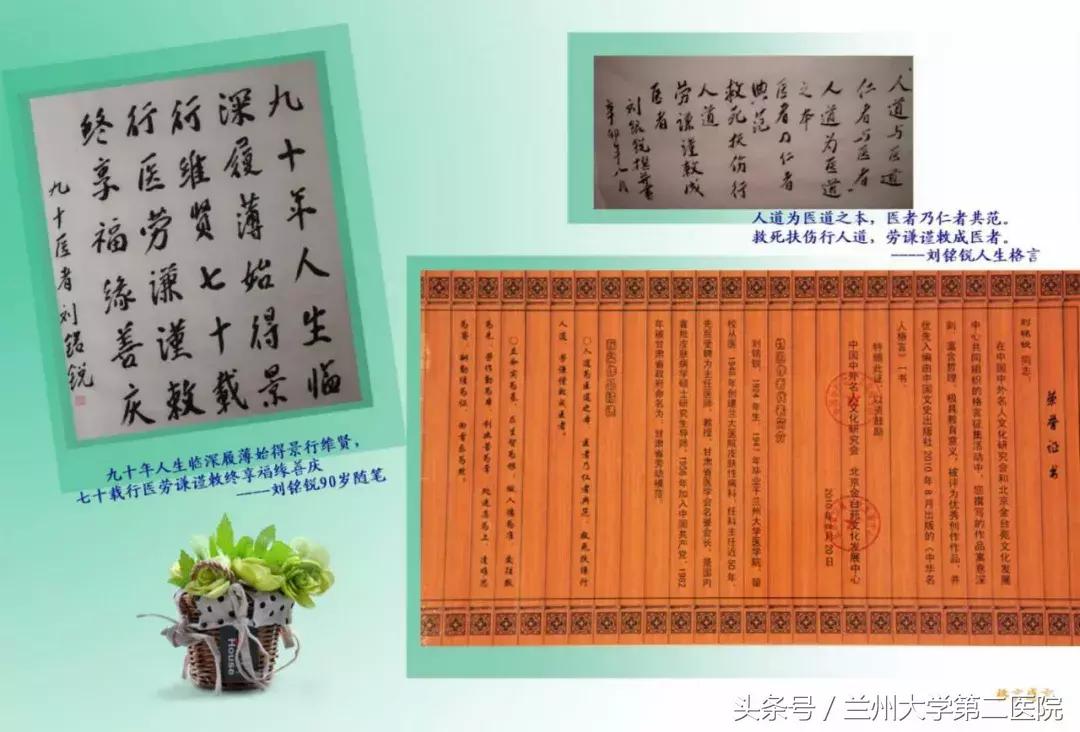 九十年人生临
深履薄始得景
行维贤七十载
行医劳谦谨敕
终享福缘善庆
九十医者刘铭锐
九十年人生临深履薄始得景行维贤，
七十载行医劳谦谨敕终享福缘善庆
----刘铭锐90岁随笔
House
人道与医道
仁者与医者
人道为医道
之本
医者乃仁者
典范
救死扶伤行
人道
劳谦谨敕成
医者
刘铭锐撰并书
辛卯年八月
人道为医道之本，医者乃仁者共范。
救死扶伤行人道，劳谦谨敕成医者。
----刘铭锐人生格言
荣誉证书
刘铭锐 同志：
在中国中外名人文化研究会和北京金台苑文化发展
中心共同组织的格言征集活动中，您撰写的作品寓意深
刻，富含哲理，极具教育意义，被评为优秀创作作品，并
优先入编由中国文史出版社2010年8月出版的《中华名
人格言》一书。
特颁此证，以资鼓励
中国中外名人文化研究会 北京金台苑文化发展中心
2010年8月20日
刘铭锐，1924年生，1947年毕业于兰州大学医学院，留
校从医，1948年创建兰大医院皮肤性病科，任科主任近50年，
先后受聘为主任医师、教授，甘肃省医学会名誉会长，是国内
首批皮肤病学硕士研究生导师，1956年加入中国共产党，1982
年被甘肃省政府命名为"甘肃省劳动模范。
○人道为医道之本，医者乃仁者典范。救死扶伤行
人道，劳谦谨敕成医者。
头条号 / 兰州大学第二医院